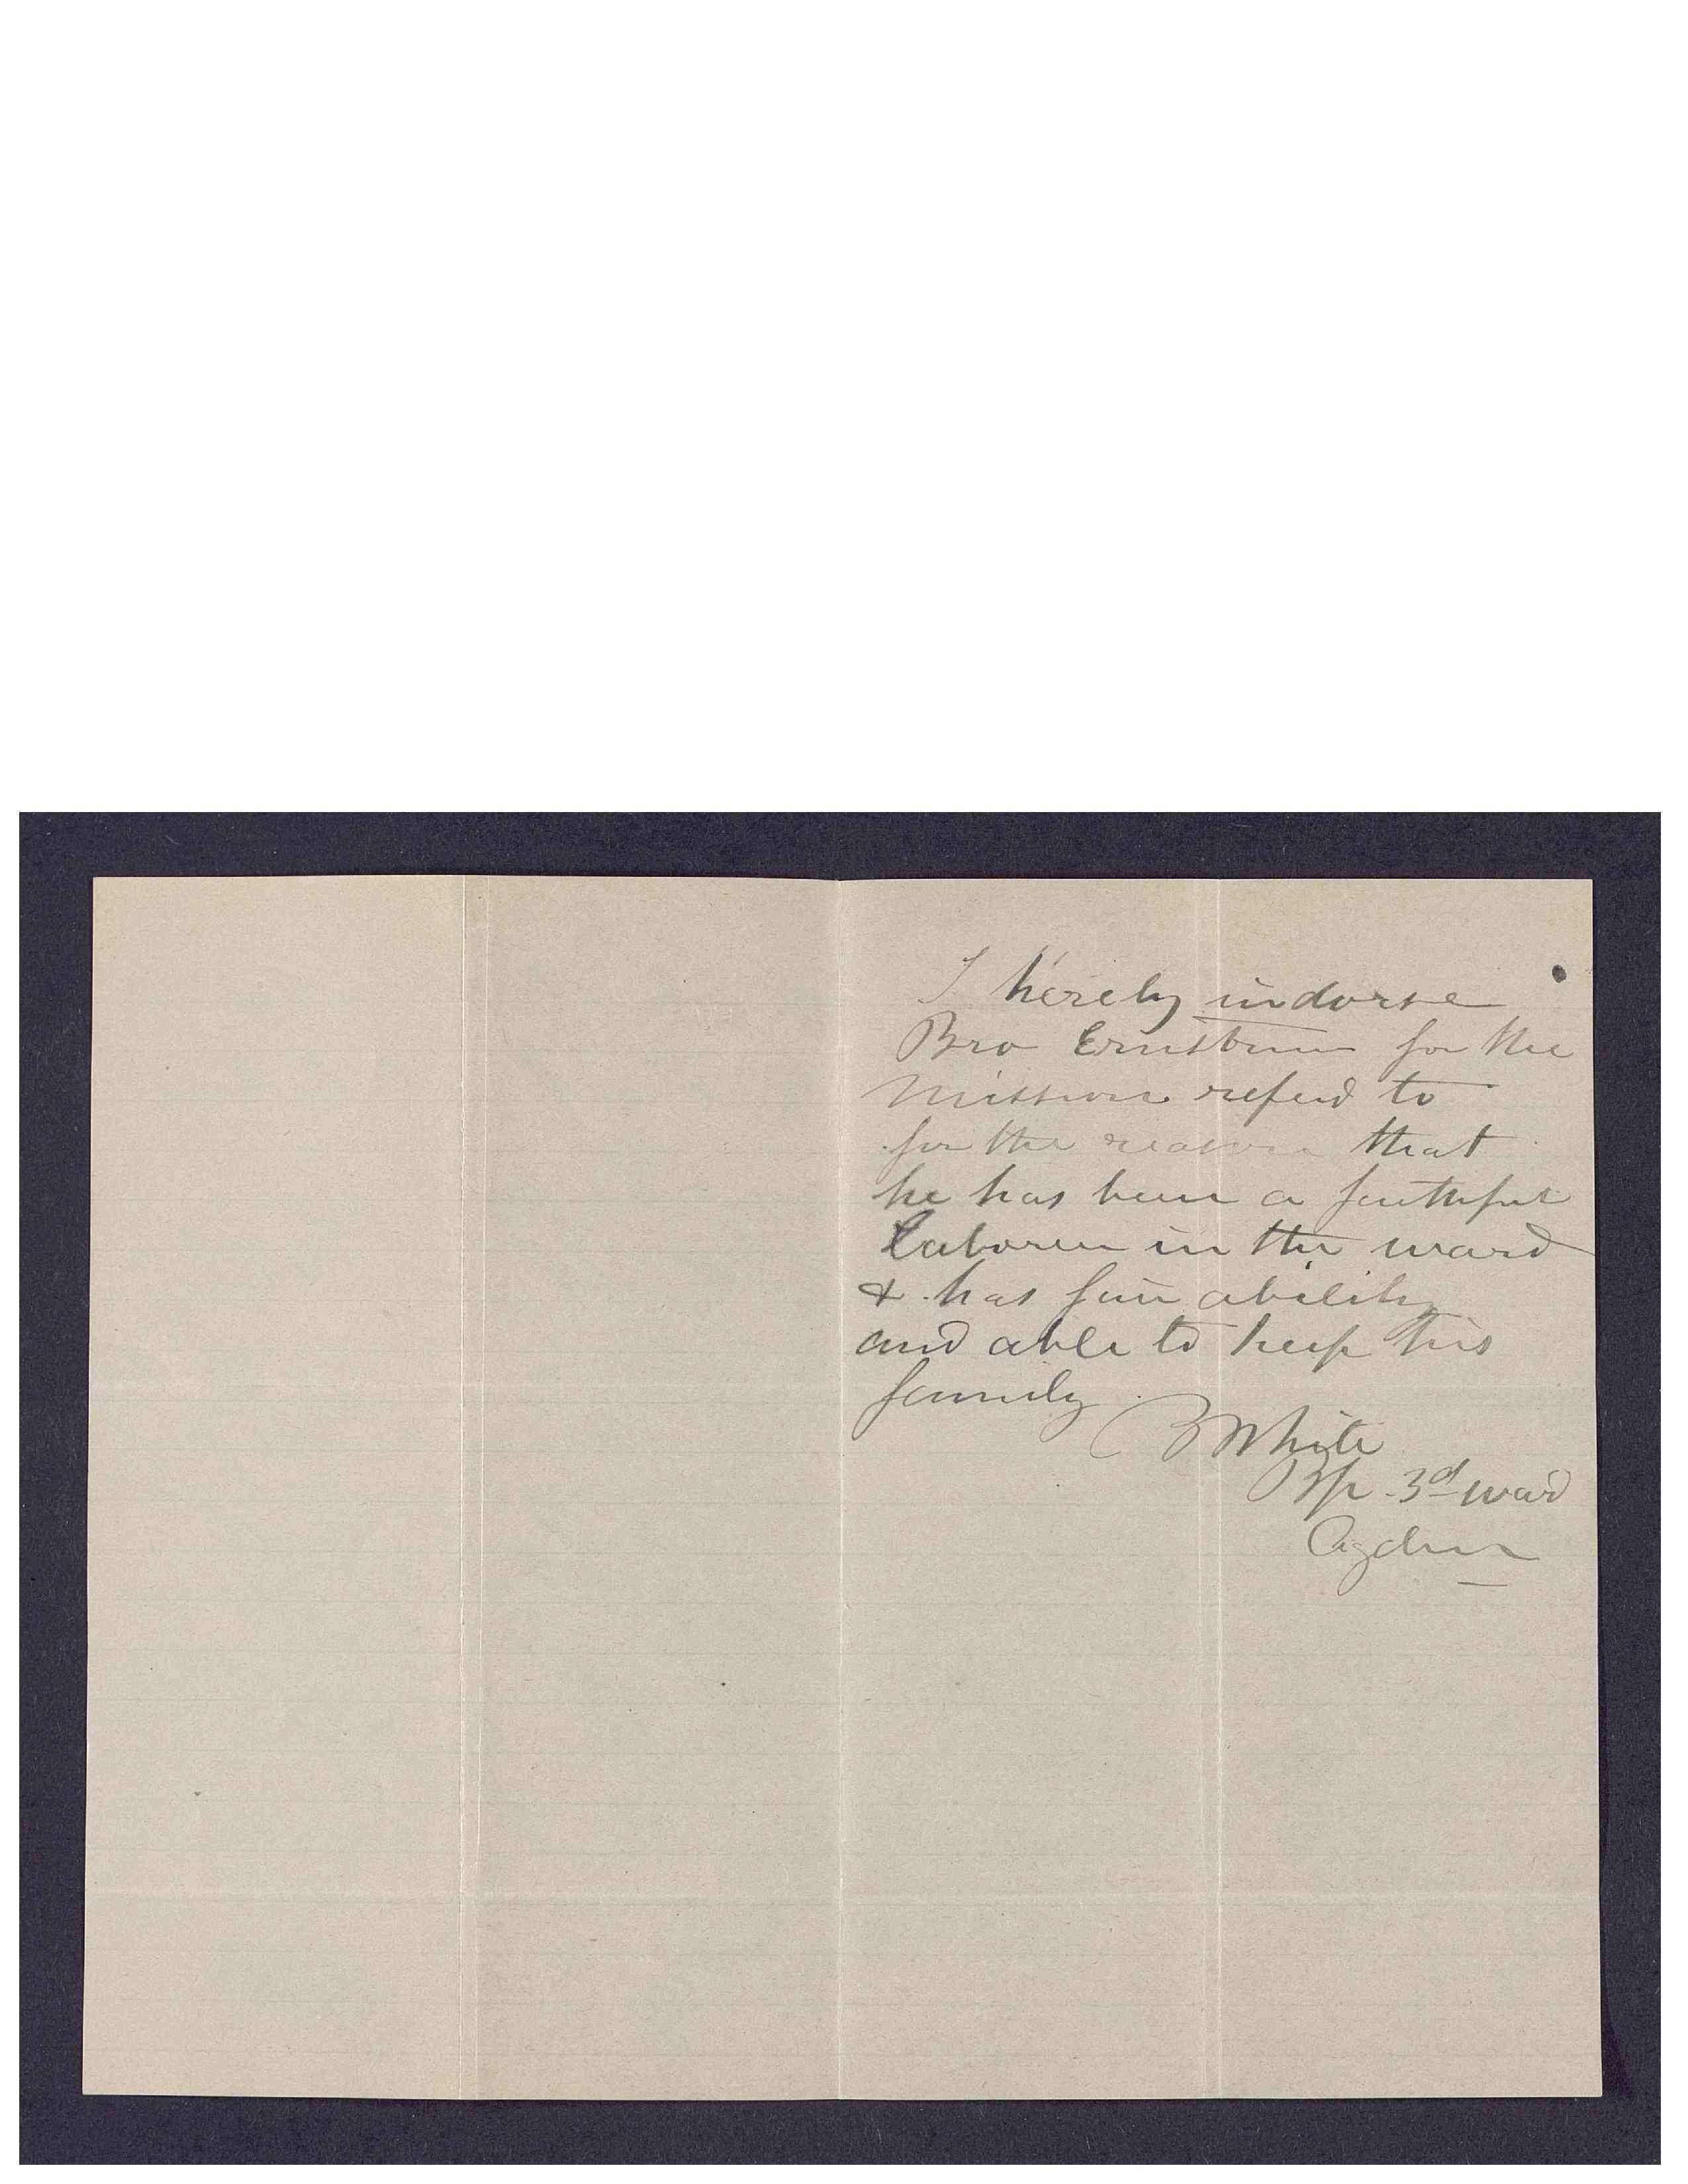 I hereby indorse
Bro Ernstrum for the
Mission referd to
for the reason that
he has been a faithful
laborer in the ward
& has fair ability
and able to keep his
family
B White
Bp. 3d ward
Ogden